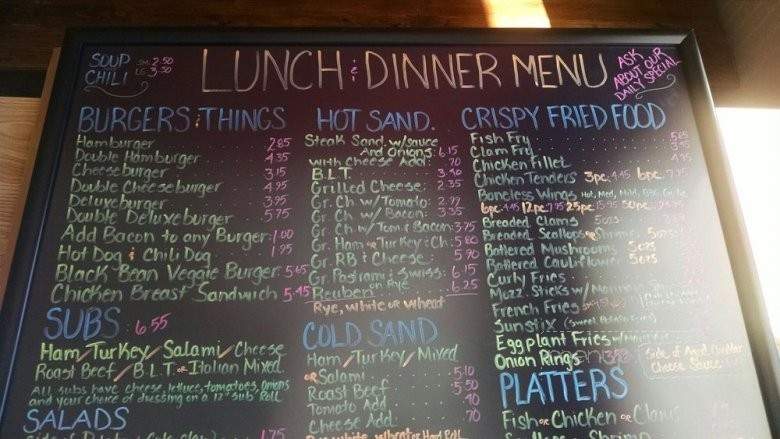 SOUP SM. 2.50
CHILI LG 3.50
LUNCH & DINNER MENU
ASK ABOUT OUR DAILY SPECIAL
BURGERS & THINGS
Hamburger 2.85
Double Hamburger 4.35
Cheeseburger 3.15
Double Cheeseburger 4.95
Deluxeburger 3.95
Double Deluxeburger 5.75
Add Bacon to any Burger 1.00
Hot Dog & Chili Dog 1.95
Black Bean Veggie Burger 5.65
Chicken Breast Sandwich 5.45
SUBS 6.55
Ham/Turkey/Salami/Cheese
Roast Beef/B.L.T. or Italian Mixed
All subs have cheese, lettuce, tomatoes, onions
and your choice of dressing on a 12" sub Roll
SALADS
1.75
HOT SAND.
Steak Sand. w/sauce
And Onions 6.15
with Cheese Add .70
B.L.T.
Grilled Cheese 2.35
Gr. Ch w/ Tomato 2.97
Gr. Ch w/ Bacon 3.35
Gr. Ch w/ Tom & Bacon 3.75
Gr. Ham or Turkey & Ch 5.80
Gr. RB & Cheese 5.70
Gr. Pastrami & Swiss 6.15
on Rye
Reuben 6.25
Rye, white or wheat
COLD SAND
Ham/Turkey/Mixed
or Salami 5.10
Roast Beef 5.50
Tomato Add .40
Cheese Add .70
CRISPY FRIED FOOD
Fish Fry
Clam Fry
Chicken Fillet
Chicken Tenders 3pc. 4.45 6pc.
Boneless Wings Hot, Med, Mild, BBQ
6pc 4.45 12pc 7.95 25pc 15.95 50pc
Breaded Clams 5ozs
Breaded Scallops or Shrimp 5ozs
Battered Mushrooms 5ozs
Battered Cauliflower 5ozs
Curly Fries
Mozz. Sticks w/
French Fries
Sunstix (Sweet Potato Fries)
Eggplant Fries
Onion Rings
Cheese Sauce
PLATTERS
Fish or Chicken or Clams